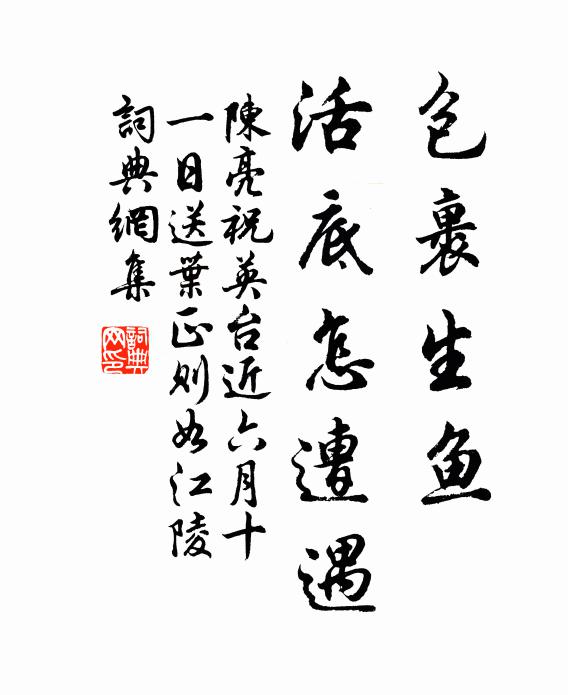 包裹生鱼
活底怎遭遇
陳亮祝英台近六月十
一日送葉正则如江陵
詞典網集
詞典网印